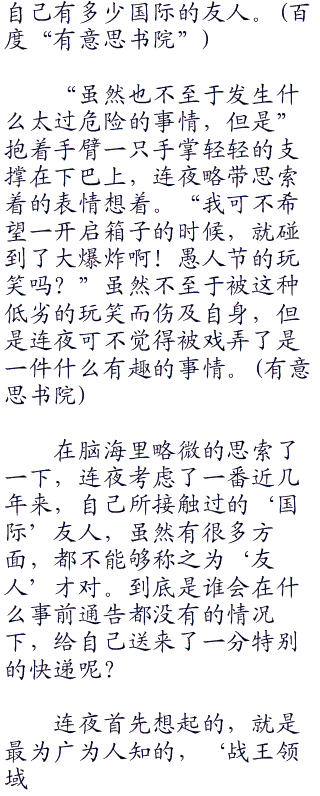 自己有多少国际的友人。(百
度“有意思书院”)
“虽然也不至于发生什
么太过危险的事情，但是”
抱着手臂一只手掌轻轻的支
撑在下巴上，连夜略带思索
着的表情想着。“我可不希
望一开启箱子的时候，就碰
到了大爆炸啊！愚人节的玩
笑吗？”虽然不至于被这种
低劣的玩笑而伤及自身，但
是连夜可不觉得被戏弄了是
一件什么有趣的事情。(有意
思书院)
在脑海里略微的思索了
一下，连夜考虑了一番近几
年来，自己所接触过的‘国
际’友人，虽然有很多方
面，都不能够称之为‘友
人’才对。到底是谁会在什
么事前通告都没有的情况
下，给自己送来了一分特别
的快递呢？
连夜首先想起的，就是
最为广为人知的，‘战王领
域